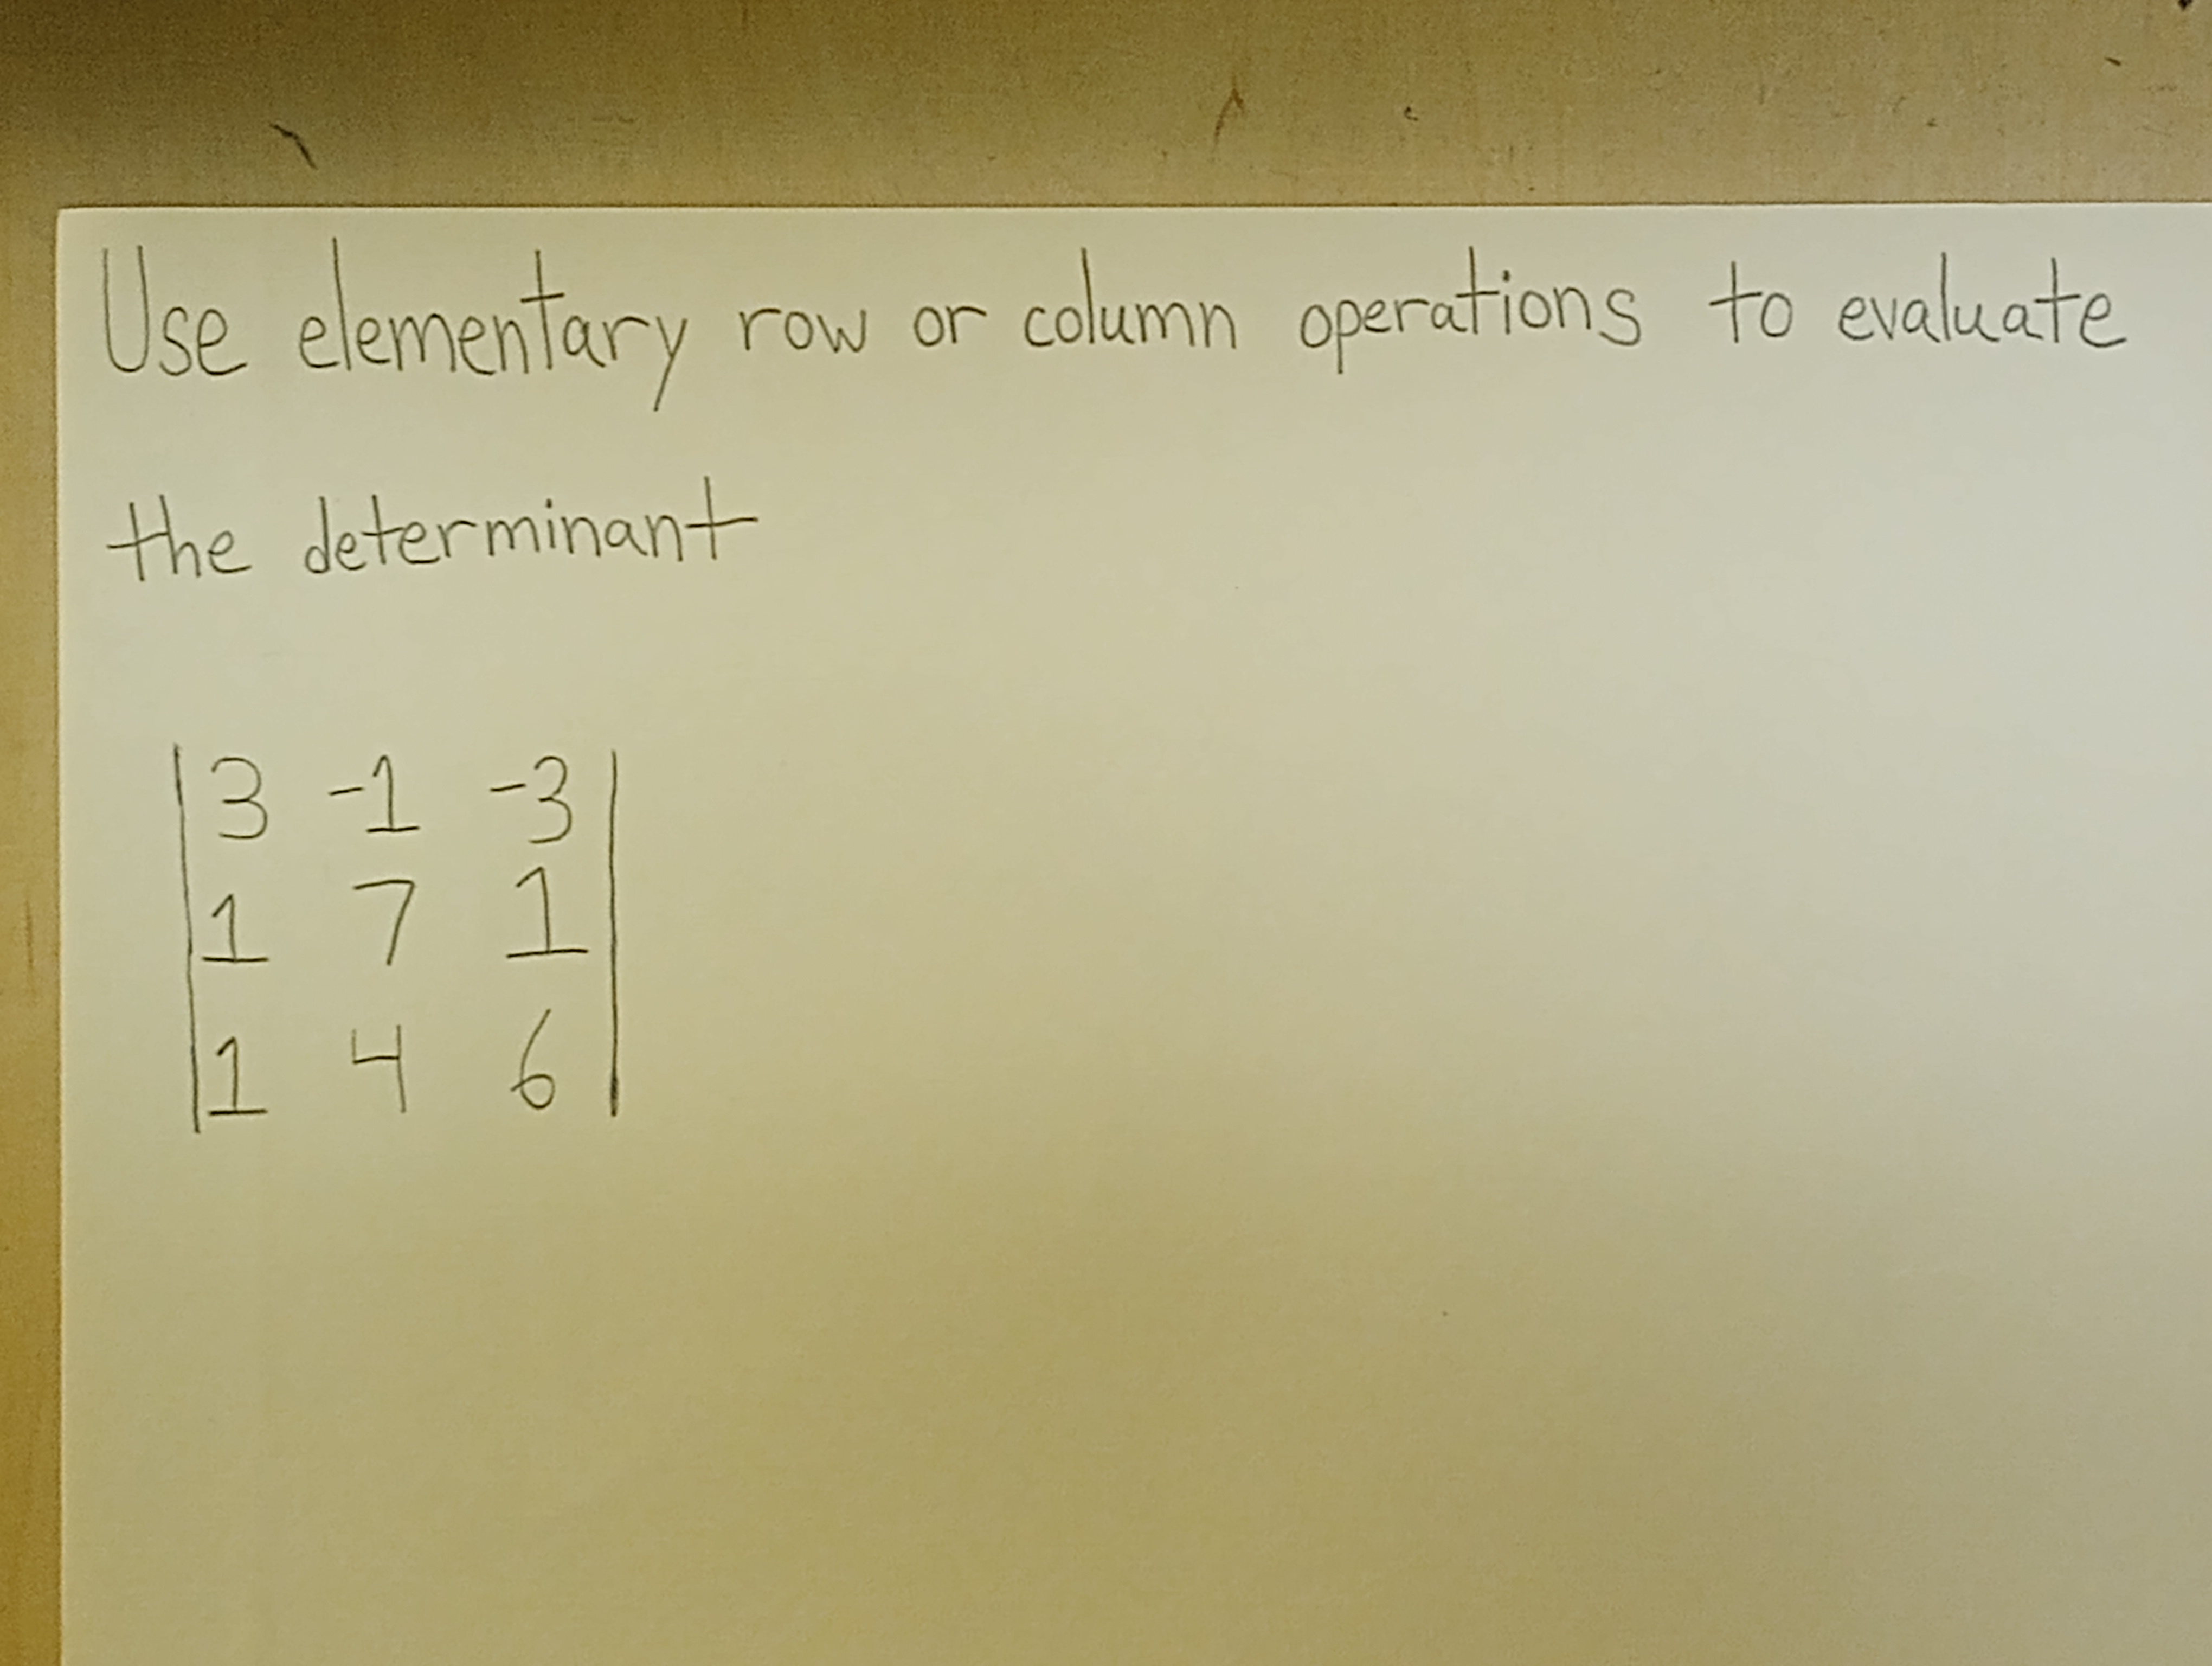 Use elementary row or column operations to evaluate
the determinant
|3 -1 -3|
|1 7 1|
|1 4 6|